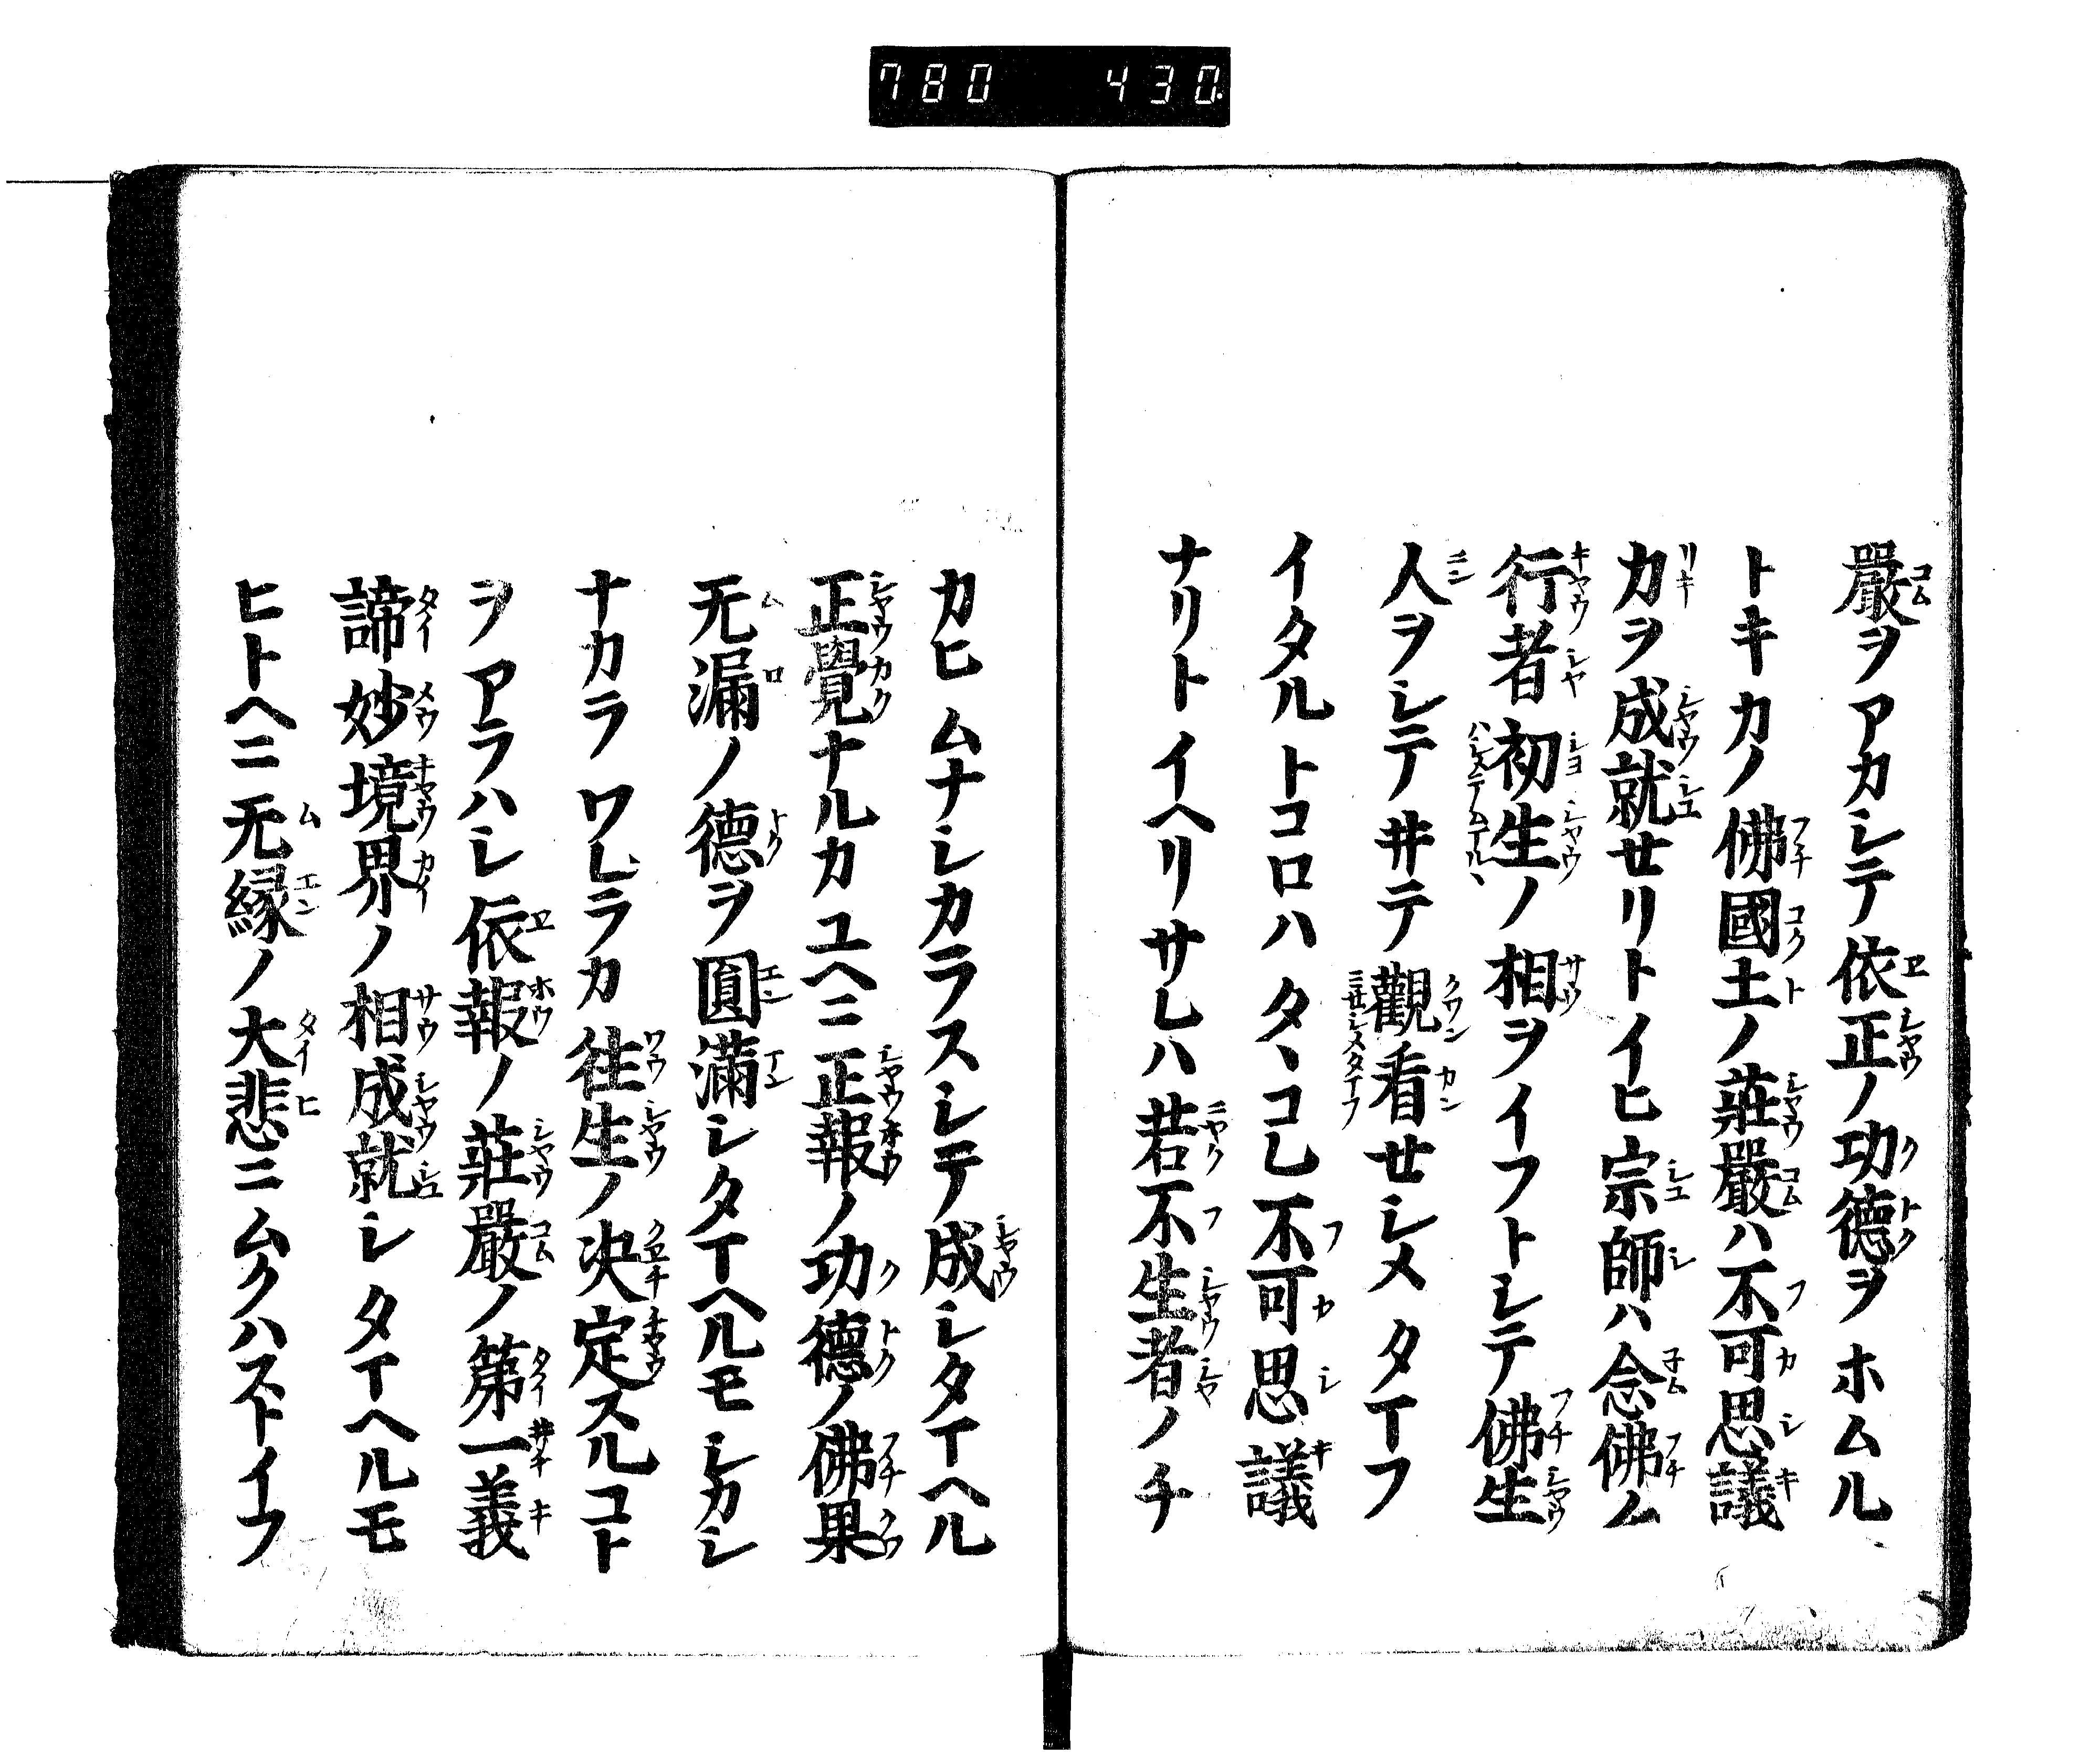 780 430
嚴ヲアカシテ依正ノ功德ヲホムル
トキカノ佛國土ノ莊嚴ハ不可思議
力ヲ成就セリトイヒ宗師ハ念佛ノ
行者初生ノ相ヲイフトシテ佛生
人ヲシテ井テ觀看セシメタマフ
イタルトコロハタヽコレ不可思議
ナリトイヘリサレハ若不生者ノチ
カヒムナシカラスシテ成シタマヘル
正覺ナルカユヘニ正報ノ功德ノ佛果
无漏ノ德ヲ圓滿シタマヘルモシカシ
ナカラワレラカ往生ノ決定スルコト
ヲアラハシ依報ノ莊嚴ノ第一義
諦妙境界ノ相成就シタマヘルモ
ヒトヘニ无緣ノ大悲ニムクハストイフ